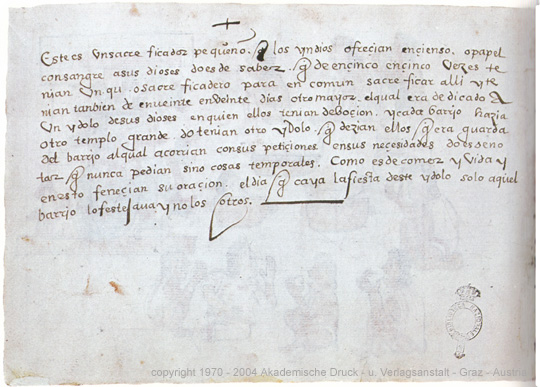 Este es un sacre ficador pequeño. q los yndios ofreçian ençienso. o papel
con sangre a sus dioses do es de saber. q de en çinco en çinco vezes te
nian un qu. o sacre ficadero para en comun sacre ficar alli y te
nian tanbien de en veinte en veinte dias otro mayor. el qual era de dicado A
un ydolo de sus dioses en quien ellos tenian deboçion. y cada barrjo hazia
otro templo grande. do tenian otro ydolo. q dezian ellos q era guarda
del barrjo al qual acorrian con sus petiçiones en sus neçessidades do es de no
tar q nunca pedian sino cosas temporales. Como es de comer y vida y
en esto feneçian su oraçion. el dia q caya la fiesta deste ydolo solo aquel
barrjo lo festejaua y no los otros.
copyright 1970 - 2004 Akademische Druck - u. Verlagsanstalt - Graz - Austria